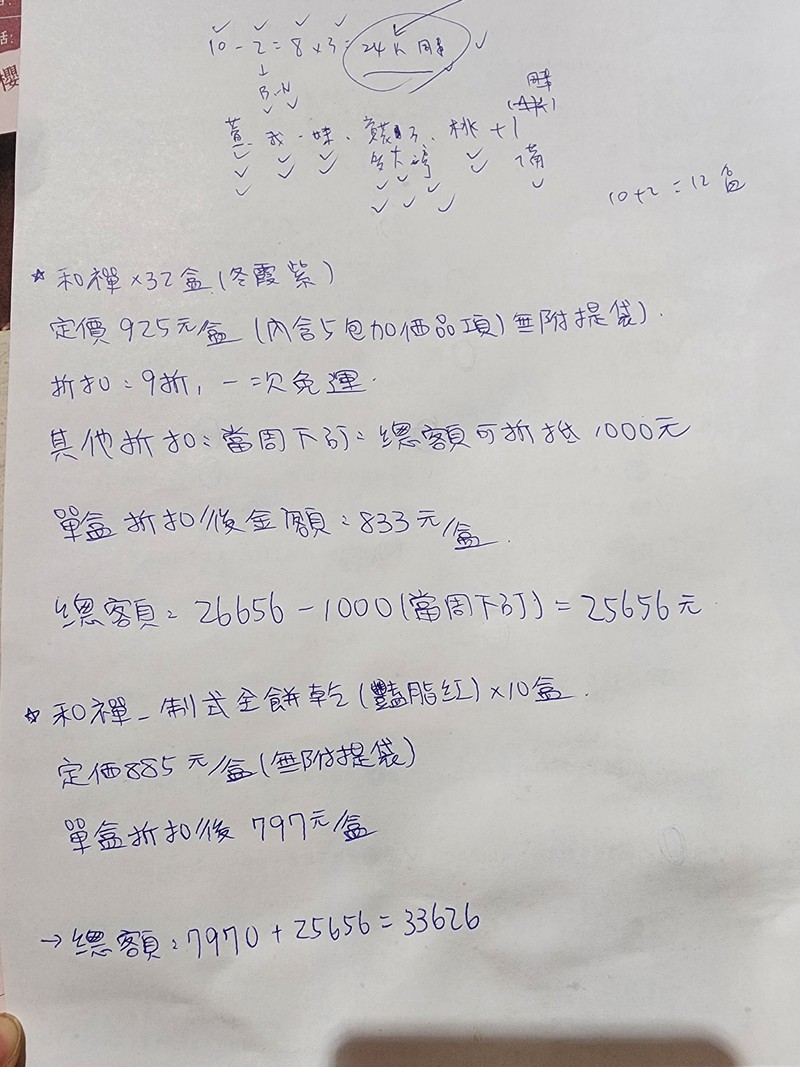 話:
櫻
10-2=8×3=24K
B.N
我.妹.
桃+1
10+2=12盒
☆和禪×32盒(冬霞紫)
定價925元/盒(內含5包加価品項)無附提袋).
折扣:9折,一次免運.
其他折扣:當周下訂:總額可折抵1000元
單盒折扣後金額:833元/盒.
總額:26656-1000(當周下訂)=25656元
☆和禪-制式全餅乾(豔脂紅)×10盒.
定価885元/盒(無附提袋)
單盒折扣後797元/盒
→總額:7970+25656=33626